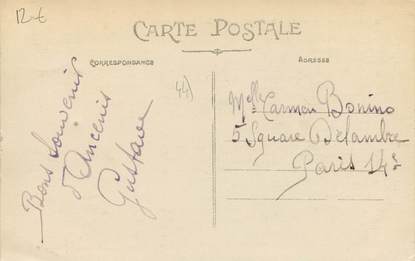 12€
CARTE POSTALE
CORRESPONDANCE
ADRESSE
44)
Bons souvenirs
d'Ancenis
Gustave
Melle Carmen Bonino
5 Square Delambre
Paris 14e